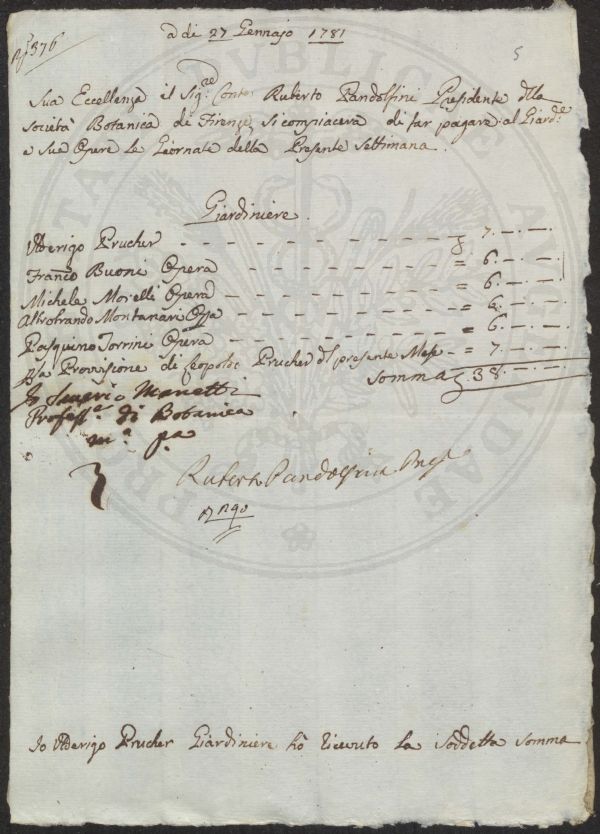 376
a di 27 Gennajo 1781
5
Sua Eccellenza il Sigre. Conte Ruberto Pandolfini Presidente dlla
società Botanica di Firenze si compiacerà di far pagare al Giardre.
e sue Opere le Giornate della Presente settimana.
Giardiniere.
Uderigo Prucher - - - - - - - - - - 7.-.-
Franco Buoni Opera - - - - - - - - - = 6.-.-
Michele Morelli Opera - - - - - - - - - = 6.-.-
Altrobrando Montanari Opra - - - - - - - - = 6.-.-
Pasquino Torrini Opera - - - - - - - - - = 6.-.-
Pla Provisione di Leopoldo Prucher dl presente Mese - = 7.-.-
Somma 38.-.-
Io Saverio Manetti
Profess.e di Botanica
m.a p.a
Ruberto Pandolfini Pres
Io Uderigo Prucher Giardiniere hò riceuuto la soddetta somma
PUBLICAE